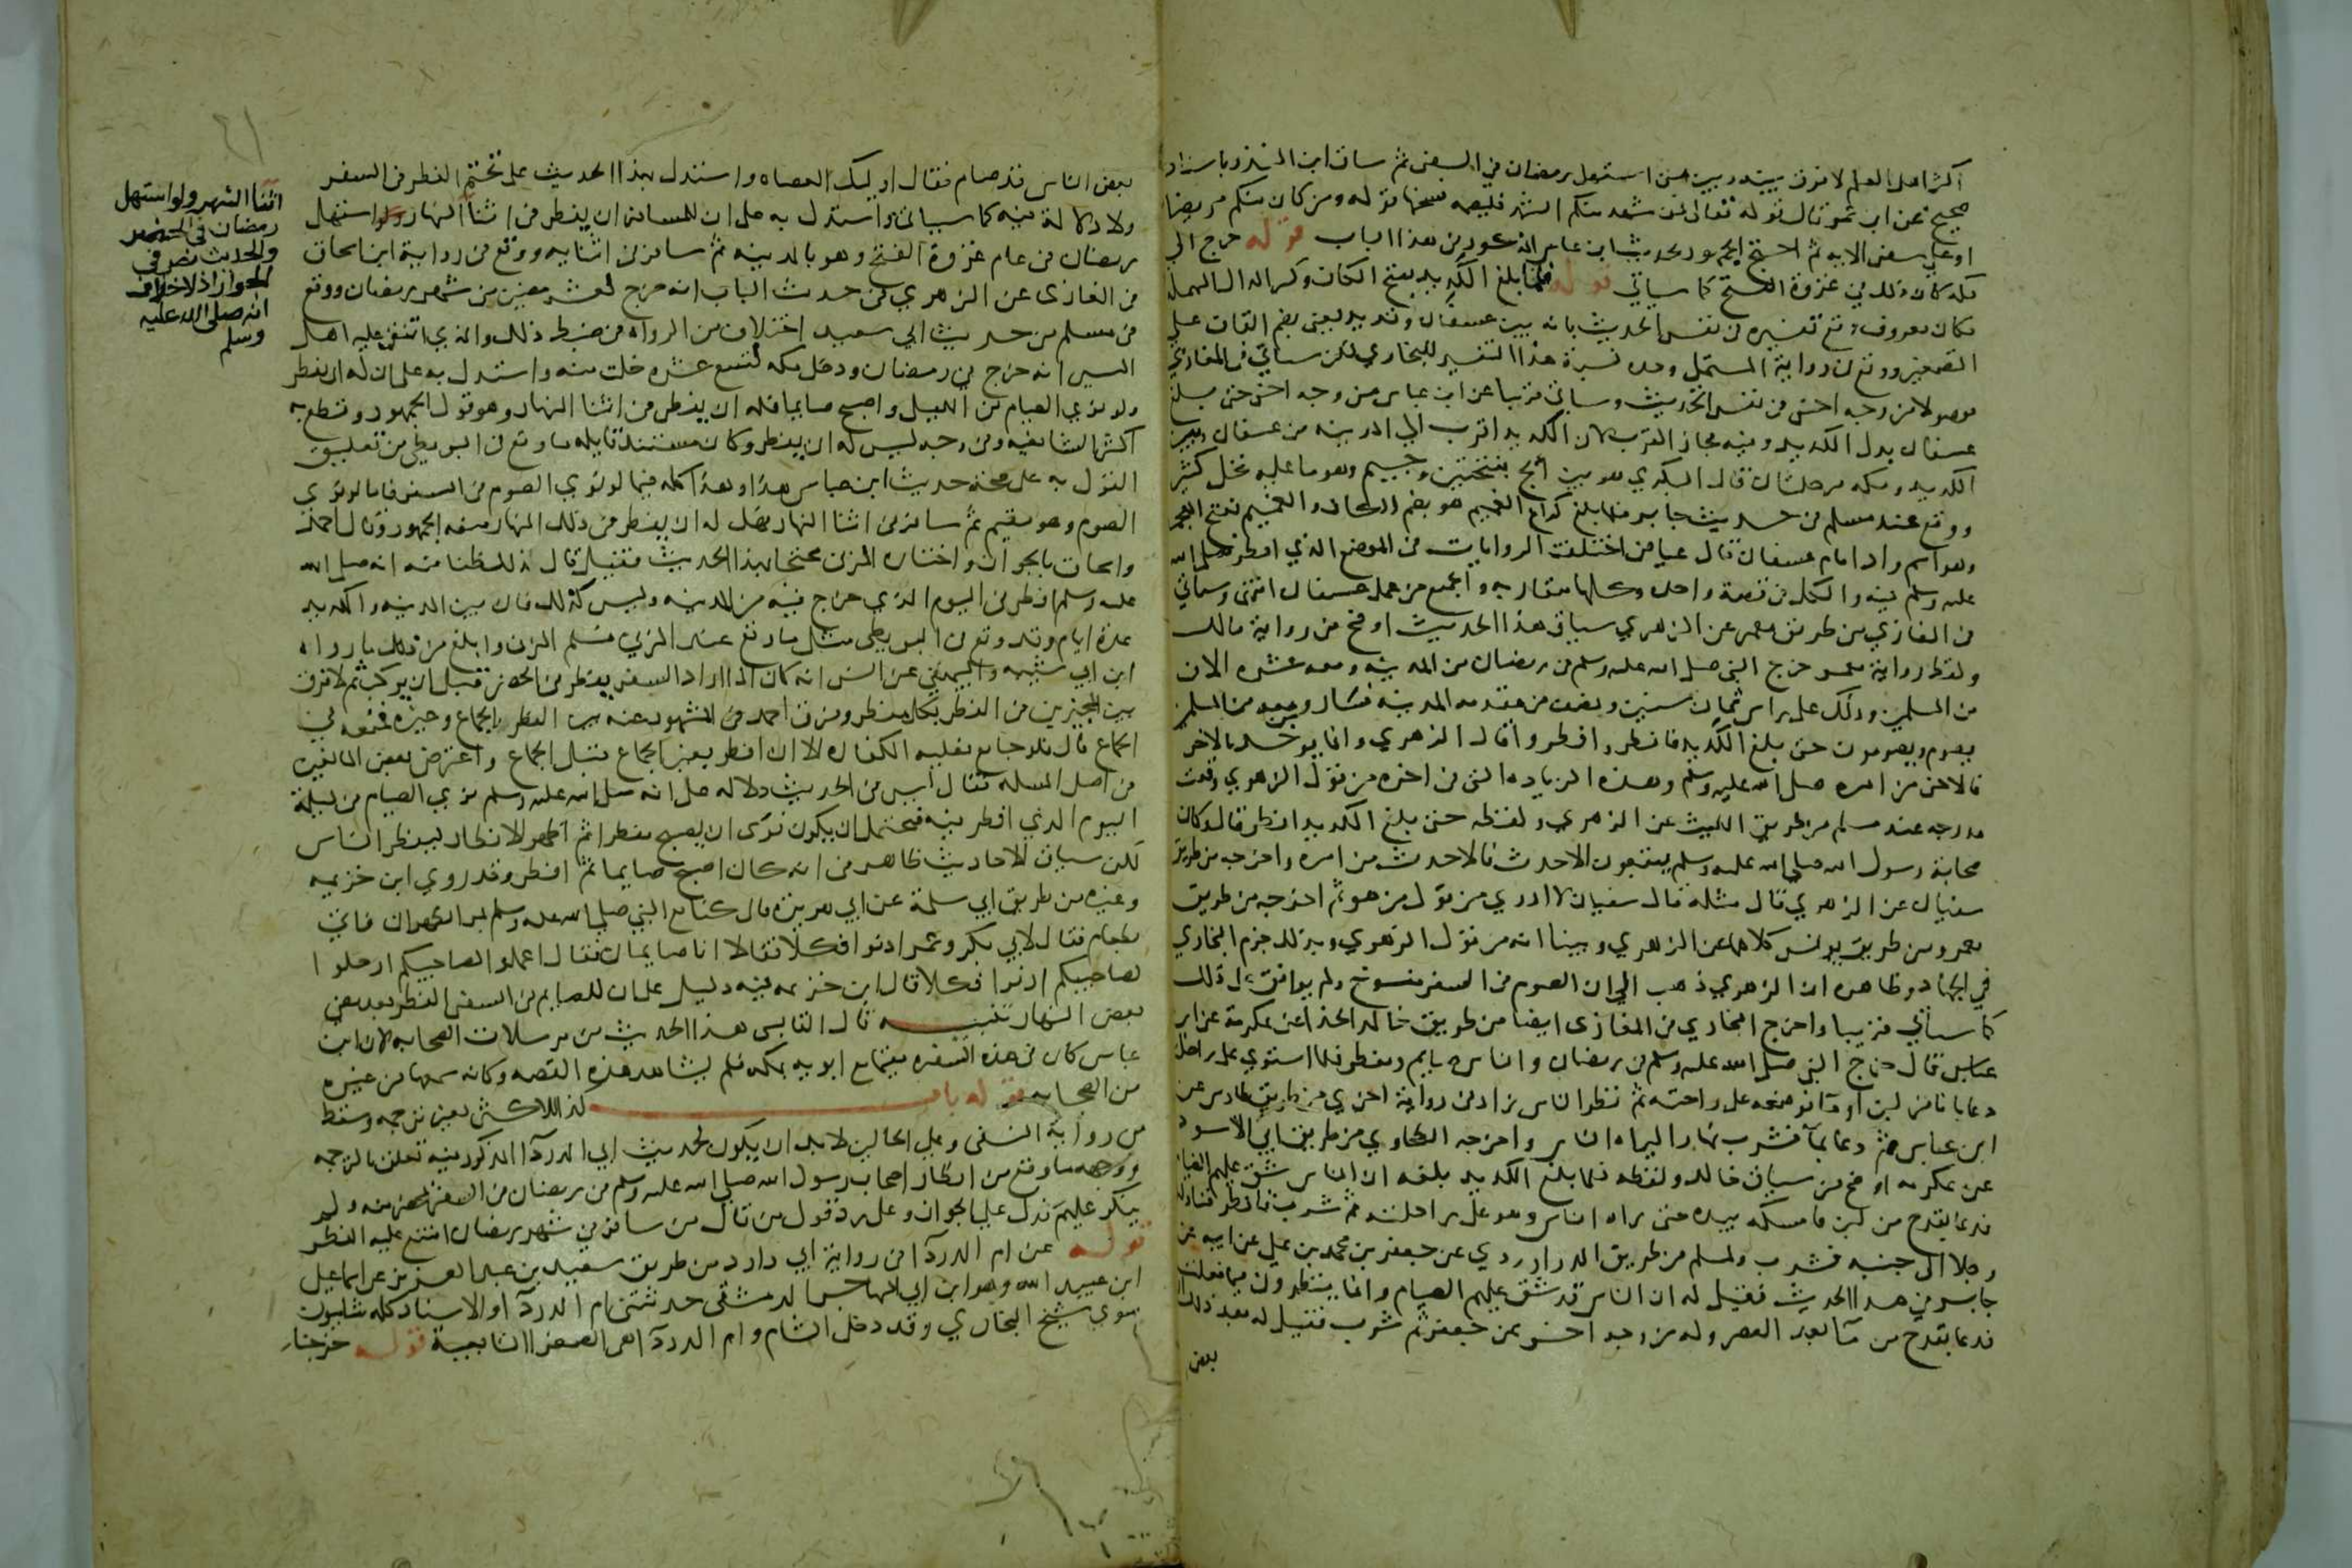 اكثر اهل العلم لا فرق بينه وبين من استهل رمضان في السفر ثم ساق ابن المنذر باسناد
صحيح عن ابن عمر قال قوله تعالى فمن شهد منكم الشهر فليصمه نسخها قوله ومن كان منكم مريضا
او على سفر الايه ثم احتج الجمهور بحديث ابن عباس المذكور في هذا الباب قوله خرج الي
مكه كان ذلك في غزوة الفتح كما سياتي قوله فلما بلغ الكديد بفتح الكاف وكسر الدال المهمله
مكان معروف وقع تفسيره في نفس الحديث بانه بين عسفان وقديد يعني بضم القاف على
التصغير ووقع في رواية المستملي وحده نسبة هذا التفسير للبخاري لكن سياتي في المغازي
موصولا من وجه اخر في نفس الحديث وسياتي قريبا عن ابن عباس من وجه اخر حتى بلغ
عسفان بدل الكديد وفيه مجاز القرب لان الكديد اقرب الي المدينه من عسفان وبين
الكديد ومكه مرحلتان قال البكري هو بين امج بفتحتين وجيم وهو ما عليه نخل كثير
ووقع عند مسلم في حديث جابر فلما بلغ كراع الغميم هو بضم الكاف والغميم بفتح المعجمه
وهو اسم واد امام عسفان قال عياض اختلفت الروايات في الموضع الذي افطر صلى الله
عليه وسلم فيه والكل في قصة واحده وكلها متقاربه والجميع من عمل عسفان انتهى وسياتي
في المغازي من طريق معمر عن الزهري سياق هذا الحديث اوضح من رواية مالك
ولفظ رواية معمر خرج النبي صلى الله عليه وسلم في رمضان من المدينه ومعه عشره الاف
من المسلمين وذلك على راس ثمان سنين ونصف من مقدمه المدينه فسار ومن معه من المسلمين
يصوم ويصومون حتى بلغ الكديد فافطر وافطروا قال الزهري وانما يوخذ بالاخر
فالاخر من امره صلى الله عليه وسلم وهذه الزياده التي في اخره من قول الزهري وقعت
مدرجه عند مسلم من طريق الليث عن الزهري ولفظه حتى بلغ الكديد افطر قال وكان
صحابة رسول الله صلى الله عليه وسلم يتبعون الاحدث فالاحدث من امره واخرجه من طريق
سفيان عن الزهري قال مثله قال سفيان لا ادري من قول من هو ثم اخرجه من طريق
معمر ومن طريق يونس كلاهما عن الزهري وبينا انه من قول الزهري وبذلك جزم البخاري
في الجهاد وظاهره ان الزهري ذهب الي ان الصوم في السفر منسوخ ولم يوافق على ذلك
كما سياتي قريبا واخرج البخاري في المغازي ايضا من طريق خالد الحذا عن عكرمة عن ابن
عباس قال خرج النبي صلى الله عليه وسلم في رمضان والناس صايم ومفطر فلما استوي على راحلته
دعا باناء من لبن او ماء فوضعه على راحته ثم نظر الناس زاد في رواية اخري من طريق طاوس عن
ابن عباس ثم دعا بماء فشرب نهارا ليراه الناس واخرجه الطحاوي من طريق ابي الاسود
عن عكرمه اوضح من سياق خالد ولفظه فلما بلغ الكديد بلغه ان الناس شق عليهم الصيام
فدعا بقدح من لبن فامسكه بيده حتى راه الناس وهو على راحلته ثم شرب فافطر فناوله
رجلا الى جنبه فشرب ولمسلم من طريق الدراوردي عن جعفر بن محمد بن علي عن ابيه عن
جابر في هذا الحديث فقيل له ان الناس قد شق عليهم الصيام وانما ينظرون فيما فعلت
فدعا بقدح من ماء بعد العصر وله من وجه اخر عن جعفر ثم شرب فقيل له بعد ذلك
بعض
بعض الناس قد صام فقال اوليك العصاه واستدل بهذا الحديث على تحتم الفطر في السفر
ولا دلالة فيه كما سياتي واستدل به على ان للمسافر ان يفطر في اثنا النهار ولو استهل
رمضان في عام غزوة الفتح وهو بالمدينه ثم سافر في اثنايه ووقع في رواية ابن اسحاق
في المغازي عن الزهري في حديث الباب انه خرج لعشر مضين من شهر رمضان ووقع
في مسلم من حديث ابي سعيد اختلاف من الرواه في ضبط ذلك والذي اتفق عليه اهل
السير انه خرج في رمضان ودخل مكه لتسع عشره خلت منه واستدل به على ان له ان يفطر
ولو نوي الصيام من الليل واصبح صايما فله ان يفطر في اثنا النهار وهو قول الجمهور وقطع به
اكثر الشافعيه وفي وجه ليس له ان يفطر وكان مستند قايله ما وقع في البويطي من تعليق
القول به على صحة حديث ابن عباس هذا وهذا كله فيما لو نوي الصوم في السفر فاما لو نوي
الصوم وهو مقيم ثم سافر في اثنا النهار فهل له ان يفطر في ذلك النهار منعه الجمهور وقال احمد
واسحاق بالجواز واختاره المزني محتجا بهذا الحديث فقيل قال ذلك ظنا منه انه صلى الله
عليه وسلم افطر في اليوم الذي خرج فيه من المدينه وليس كذلك فان بين المدينه والكديد
عدة ايام وقد وقع في البويطي مثل ما وقع عند المزني فسلم المزني وابلغ من ذلك ما رواه
ابن ابي شيبه والبيهقي عن انس انه كان اذا اراد السفر يفطر في الحضر قبل ان يركب ثم لا فرق
بين المجيزين في الفطر بكل مفطر وفرق احمد في المشهور عنه بين الفطر بالجماع وغيره فمنعه في
الجماع قال فلو جامع فعليه الكفاره الا ان افطر بغير الجماع قبل الجماع واعترض بعض المانعين
في اصل المسله فقال ليس في الحديث دلاله على انه صلى الله عليه وسلم نوي الصيام في ليلة
اليوم الذي افطر فيه فيحتمل ان يكون نوى ان يصبح مفطرا ثم اظهر الافطار ليفطر الناس
لكن سياق الاحاديث ظاهر في انه كان اصبح صايما ثم افطر وقد روي ابن خزيمه
وغيره من طريق ابي سلمة عن ابي هريرة قال كنا مع النبي صلى الله عليه وسلم بمر الظهران فاتي
بطعام فقال لابي بكر وعمر ادنوا فكلا فقالا انا صايمان فقال اعملوا لصاحبيكم ارحلوا
لصاحبيكم ادنوا فكلا قال ابن خزيمه فيه دليل على ان للصايم في السفر الفطر بعد مضي
بعض النهار تنبيه قال القابسي هذا الحديث من مرسلات الصحابه لان ابن
عباس كان في هذه السفره مقيما مع ابويه بمكه فلم يشاهد هذه القصه وكانه سمعها من غيره
من الصحابه قوله باب كذا للاكثر بغير ترجمه وسقط
من رواية النسفي وعلى الحالين لا بد ان يكون لحديث ابي الدرداء المذكور فيه تعلق بالترجمه
ووجهه ما وقع من افطار اصحاب رسول الله صلى الله عليه وسلم في رمضان في السفر بمحضر منه ولم
ينكر عليهم فدل على الجواز وعلى رد قول من قال من سافر في شهر رمضان امتنع عليه الفطر
قوله عن ام الدرداء في رواية ابي داود من طريق سعيد بن عبد العزيز عن اسماعيل
ابن عبيد الله وهو ابن ابي المهاجر الدمشقي حدثتني ام الدرداء والاسناد كله شاميون
سوي شيخ البخاري وقد دخل الشام وام الدرداء هي الصغرى التابعية قوله خرجنا
اثنا الشهر ولو استهل
رمضان في الحضر
والحديث نص في
الجواز اذ لا خلاف
انه صلى الله عليه
وسلم